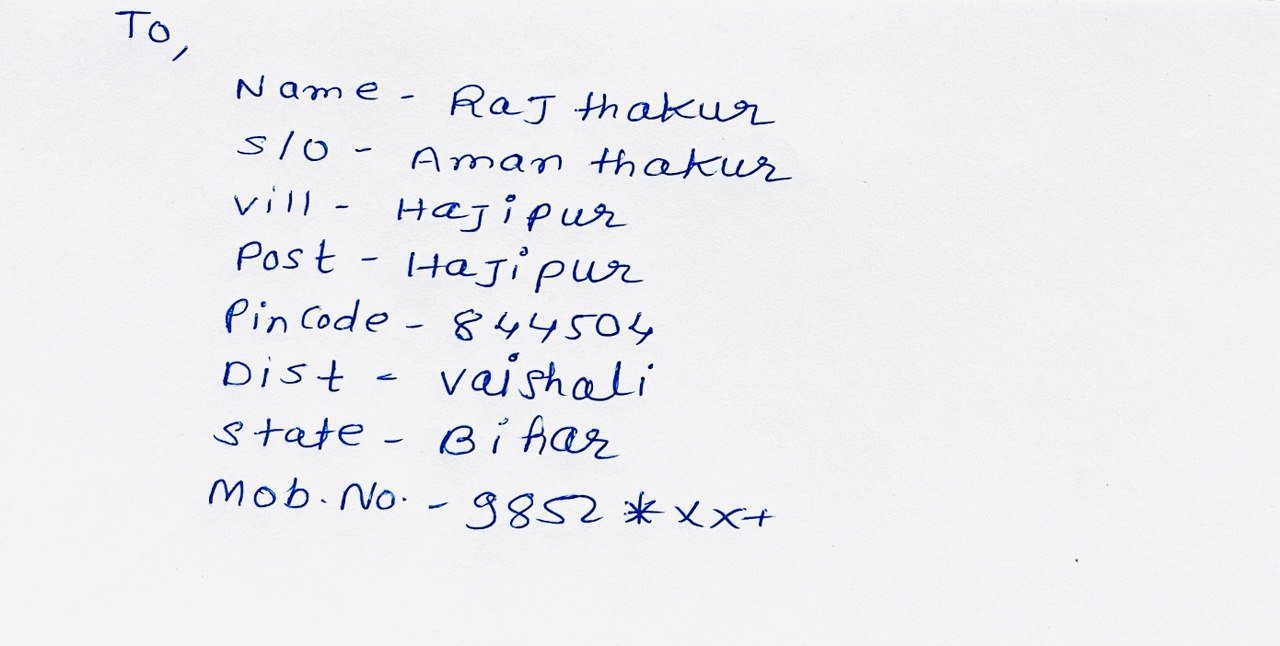 To,
Name - Raj thakur
S/O - Aman thakur
Vill - Hajipur
Post - Hajipur
Pin Code - 844504
Dist - vaishali
State - Bihar
Mob. No. - 9852 * x x +